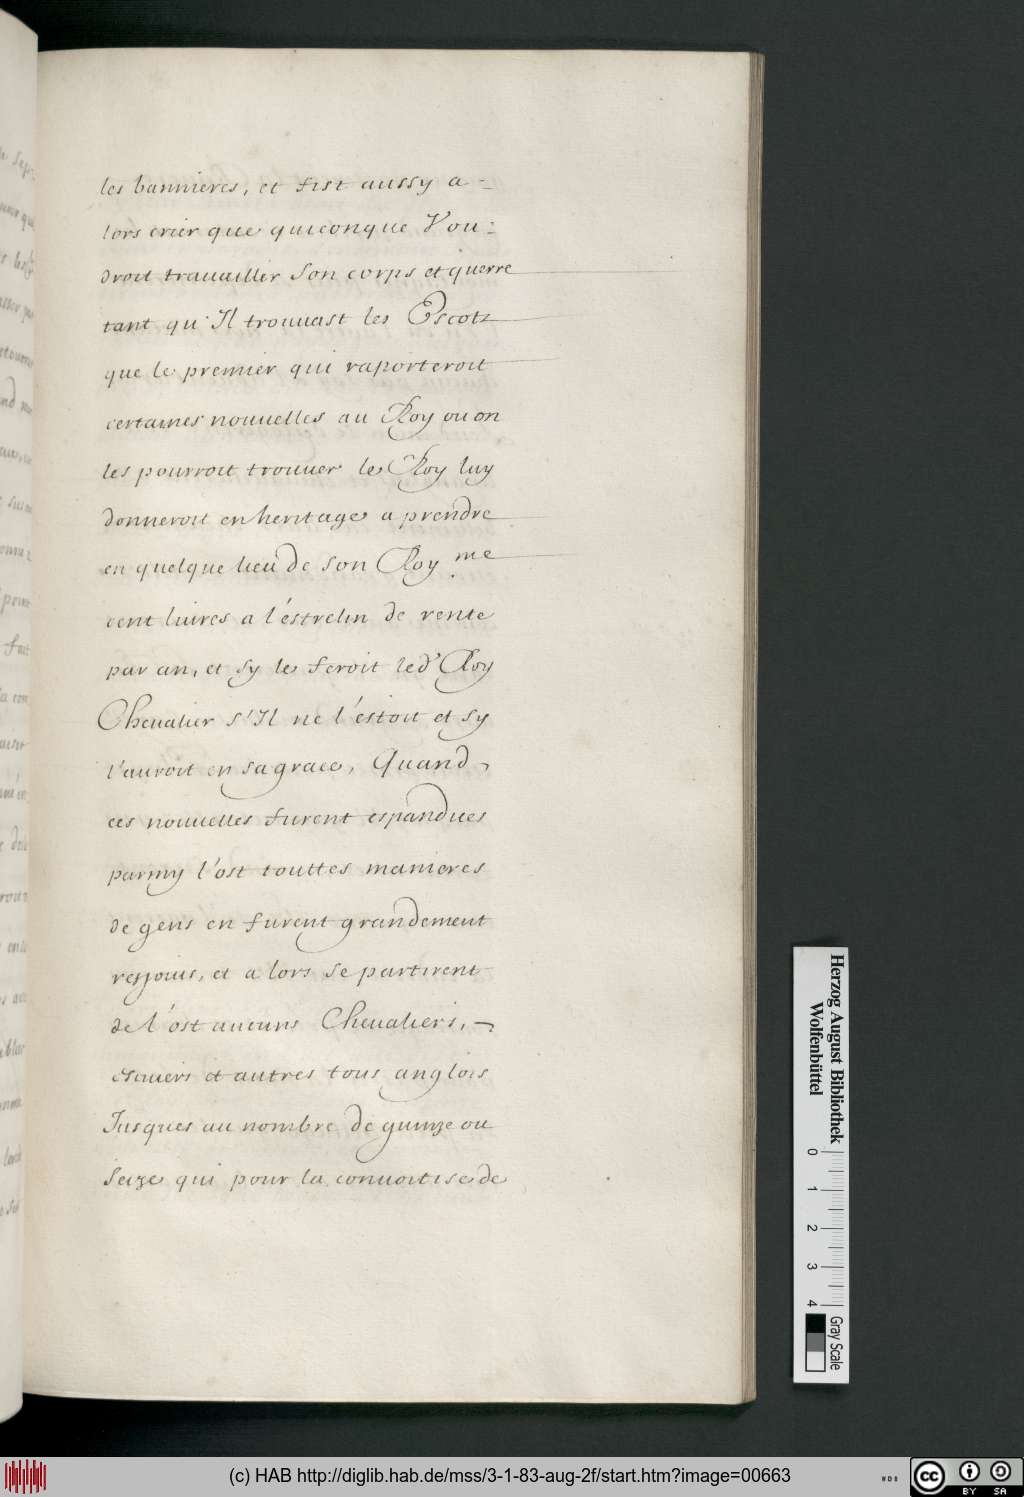 les bannieres, et fist aussy a-
lors crier que quiconque Vou-
droit trauailler son corps et querre
tant qu'Il trouuast les Escotz
que le premier qui raporteroit
certaines nouuelles au Roy ou on
les pourroit trouuer le Roy luy
donneroit en heritage a prendre
en quelque lieu de son Roy.me
cent liures a l'éstrelin de rente
par an, et sy le feroit led' Roy
Cheualier s'Il ne l'éstoit et sy
l'auroit en sa grace, Quand
ces nouuelles furent espandues
parmy l'ost touttes manieres
de gens en furent grandement
resjouis, et a lors se partirent
de l'ost aucuns Cheualiers,
escuiers et autres tous anglois
Jusques au nombre de quinze ou
seize qui pour la conuoitise de
Herzog August Bibliothek
Wolfenbüttel
0 1 2 3 4
Gray Scale
(c) HAB http://diglib.hab.de/mss/3-1-83-aug-2f/start.htm?image=00663
cc BY SA